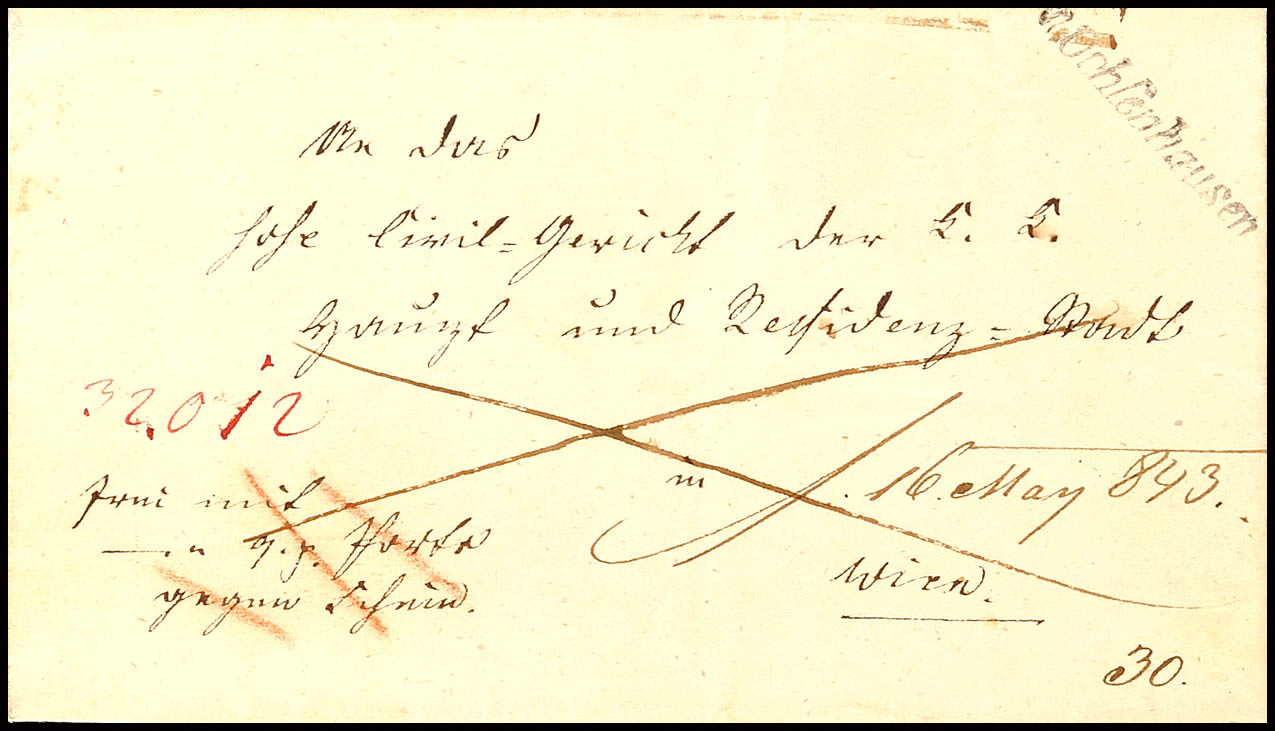 Ochsenhausen
An das
hohe Civil-Gericht der K. K.
Haupt und Residenz-Stadt
32012
frei mit
in
16. May 843.
Porto
gegen Schein.
Wien.
30.